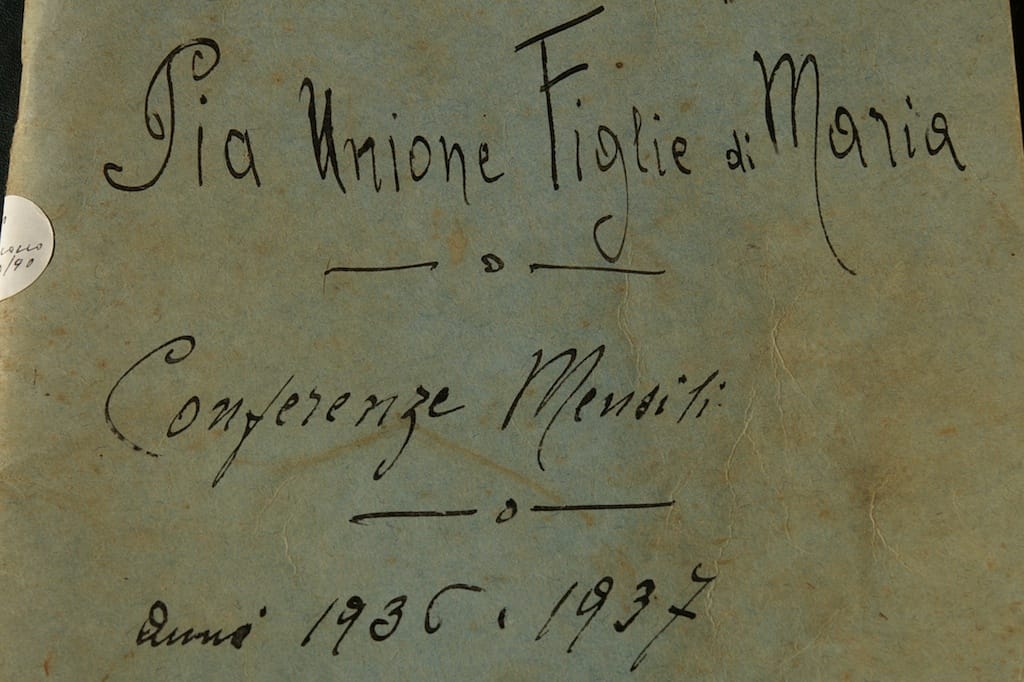 Pia Unione Figlie di Maria
Conferenze Mensili
anni 1936. 1937
/90